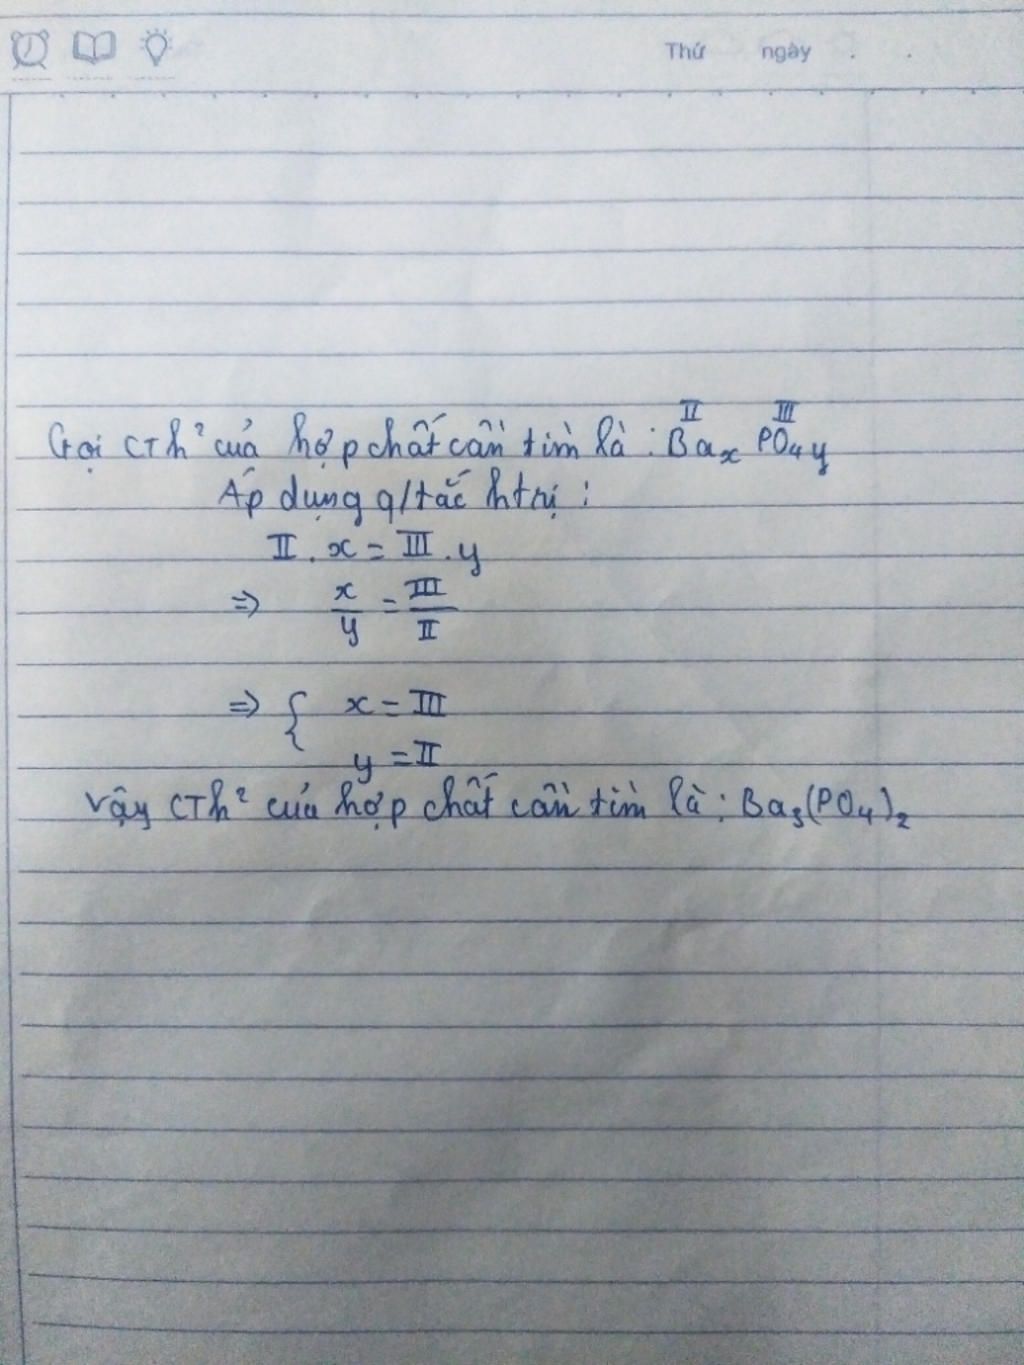 Thứ ngày . .
Gọi CTh² của hợp chất cần tìm là : Baₓ^II PO₄^III y
Áp dụng q/tắc htrị :
II . x = III . y
=> x/y = III/II
=> { x = III
y = II
Vậy CTh² của hợp chất cần tìm là : Ba₃(PO₄)₂